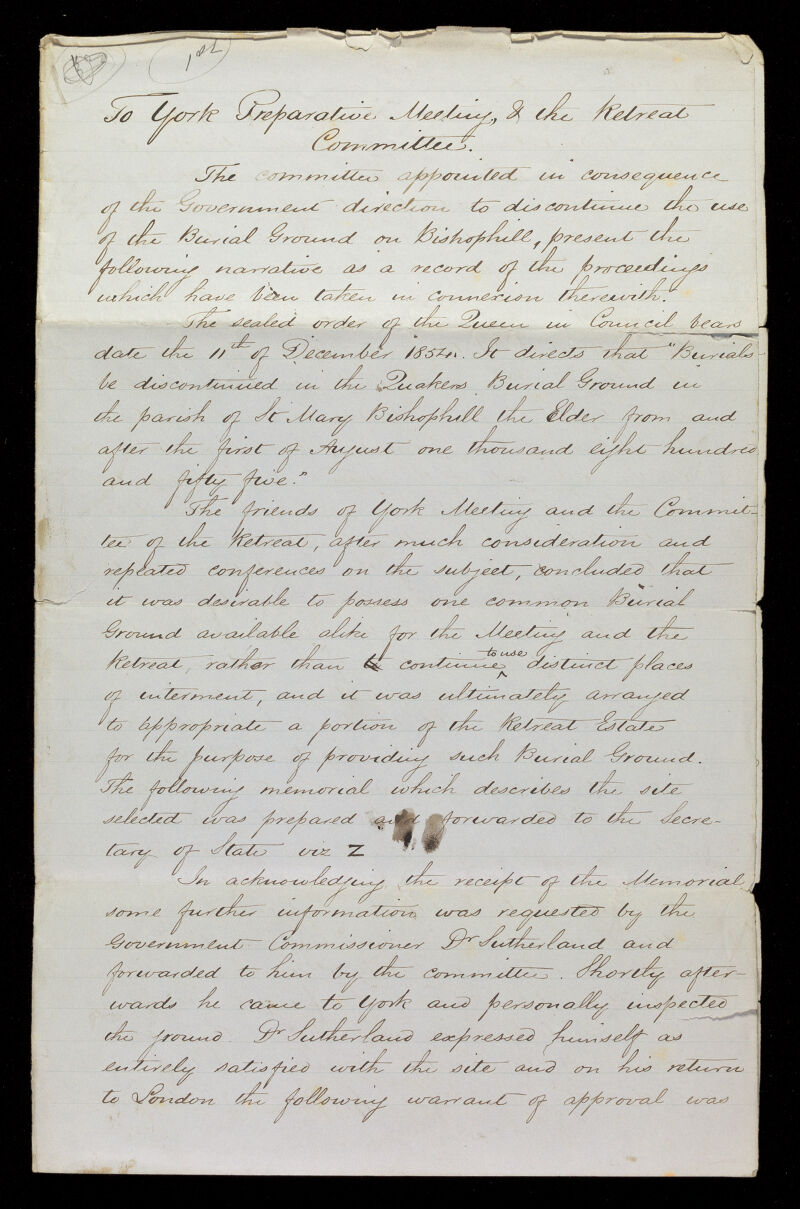 1st
To York Preparative Meeting, & the Retreat
Committee.
The committee appointed in consequence
of the Government direction to discontinue the use
of the Burial Ground on Bishophill, present the
following narrative as a record of the proceedings
which have been taken in connexion therewith.
The sealed order of the Queen in Council bears
date the 11th of December 1854. It directs that "Burials
be discontinued in the Quakers Burial Ground in
the parish of St Mary Bishophill the Elder from and
after the first of August one thousand eight hundred
and fifty five."
The friends of York Meeting and the Commit-
tee of the Retreat, after much consideration and
repeated conferences on the subject, concluded that
it was desirable to possess one common Burial
Ground available alike for the Meeting and the
Retreat, rather than continue to use distinct places
of interment, and it was ultimately arranged
to appropriate a portion of the Retreat Estate
for the purpose of providing such Burial Ground.
The following memorial which describes the site
selected was prepared and forwarded to the Secre-
tary of State viz Z
In acknowledging the receipt of the Memorial,
some further information was requested by the
Government Commissioner Dr Sutherland and
forwarded to him by the committee. Shortly after-
wards he came to York and personally inspected
the ground. Dr Sutherland expressed himself as
entirely satisfied with the site and on his return
to London the following warrant of approval was